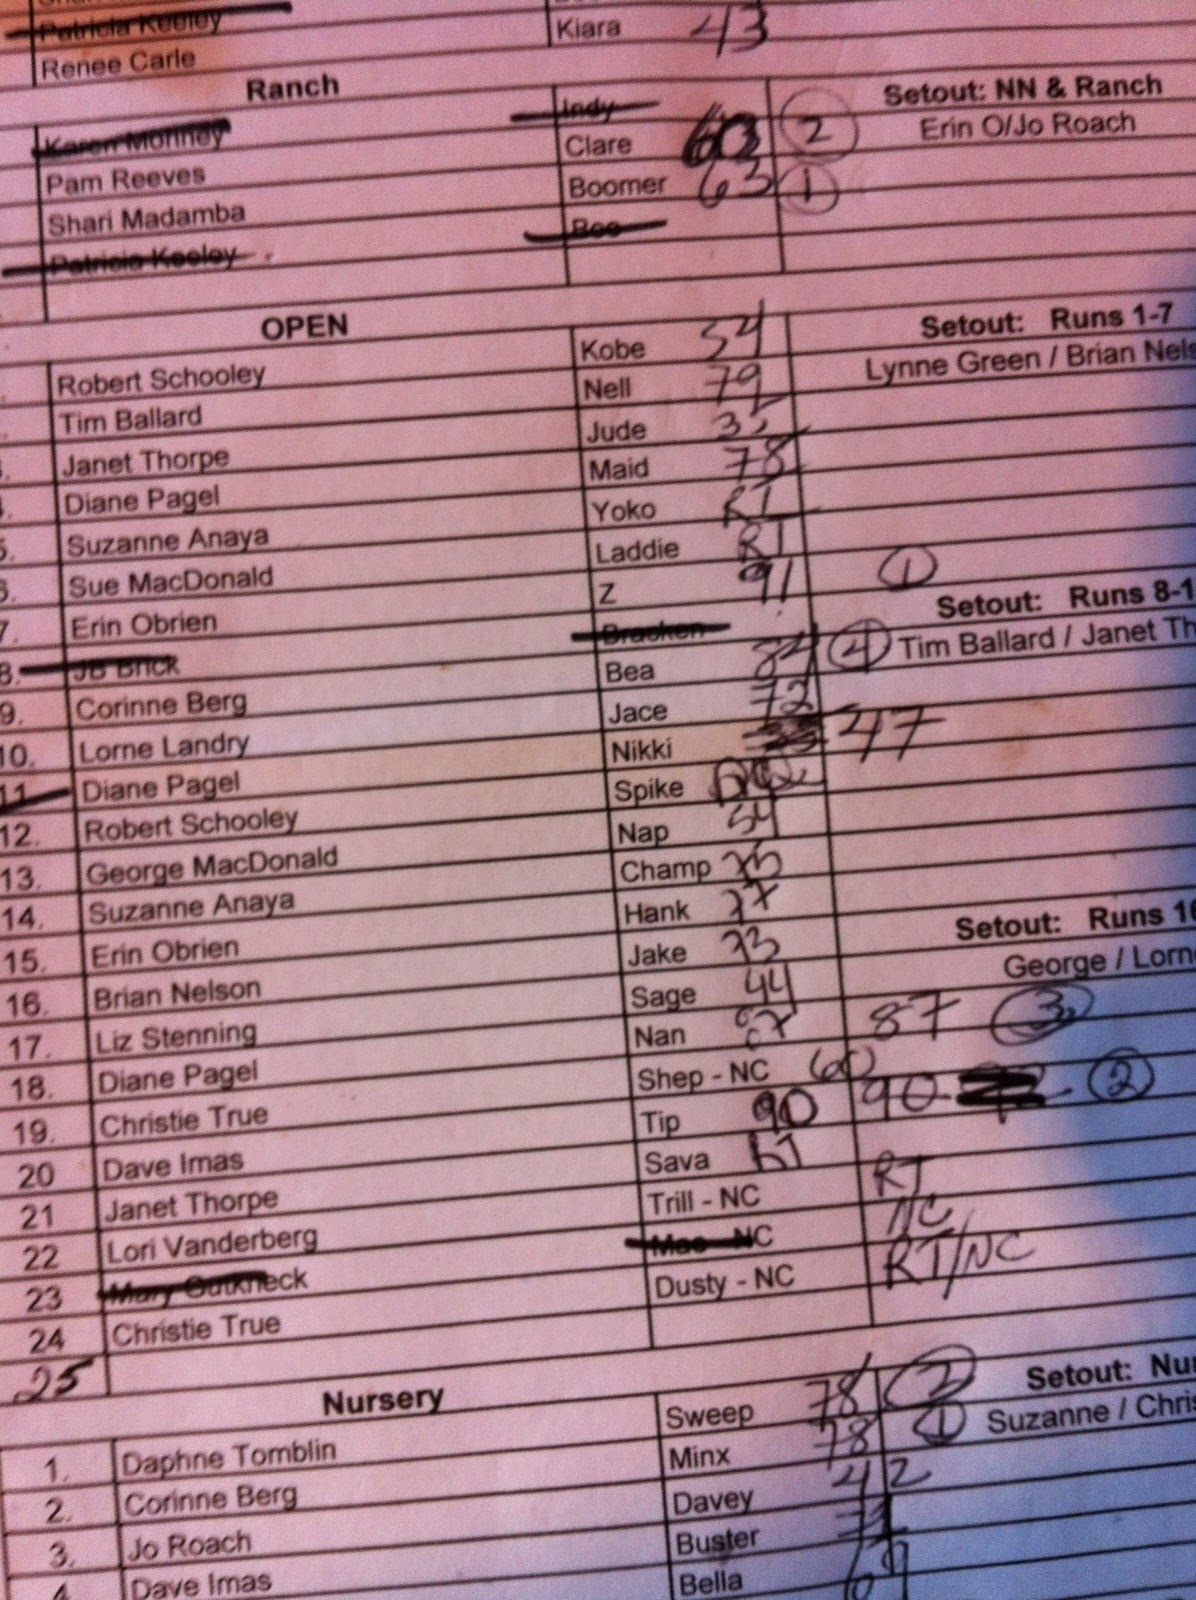 Patricia Keeley
Renee Carle Kiara 43
Ranch Setout: NN & Ranch
Karen Monney Indy Erin O/Jo Roach
Pam Reeves Clare 2
Shari Madamba Boomer 63 1
Patricia Keeley Boo
OPEN Setout: Runs 1-7
Robert Schooley Kobe 54 Lynne Green / Brian Nels
Tim Ballard Nell 79
3. Janet Thorpe Jude 35
4. Diane Pagel Maid 78
5. Suzanne Anaya Yoko RT
6. Sue MacDonald Laddie RT
7. Erin Obrien Z 91 1
8. JB Brick Bracken Setout: Runs 8-1
9. Corinne Berg Bea 84 4 Tim Ballard / Janet Th
10. Lorne Landry Jace 72
11 Diane Pagel Nikki 47
12. Robert Schooley Spike DQ
13. George MacDonald Nap 54
14. Suzanne Anaya Champ 75
15. Erin Obrien Hank 77
16. Brian Nelson Jake 73 Setout: Runs 16
17. Liz Stenning Sage 44 George / Lorn
18. Diane Pagel Nan 87 87 3
19. Christie True Shep - NC 60
20 Dave Imas Tip 90 90 2
21 Janet Thorpe Sava RT
22 Lori Vanderberg Trill - NC RT
23 Mary Gutkneck Mac - NC NC
24 Christie True Dusty - NC RT/NC
25
Nursery Setout: Nur
1. Daphne Tomblin Sweep 78 2 Suzanne / Chris
2. Corinne Berg Minx 78 1
3. Jo Roach Davey 42
4. Dave Imas Buster
Bella 69